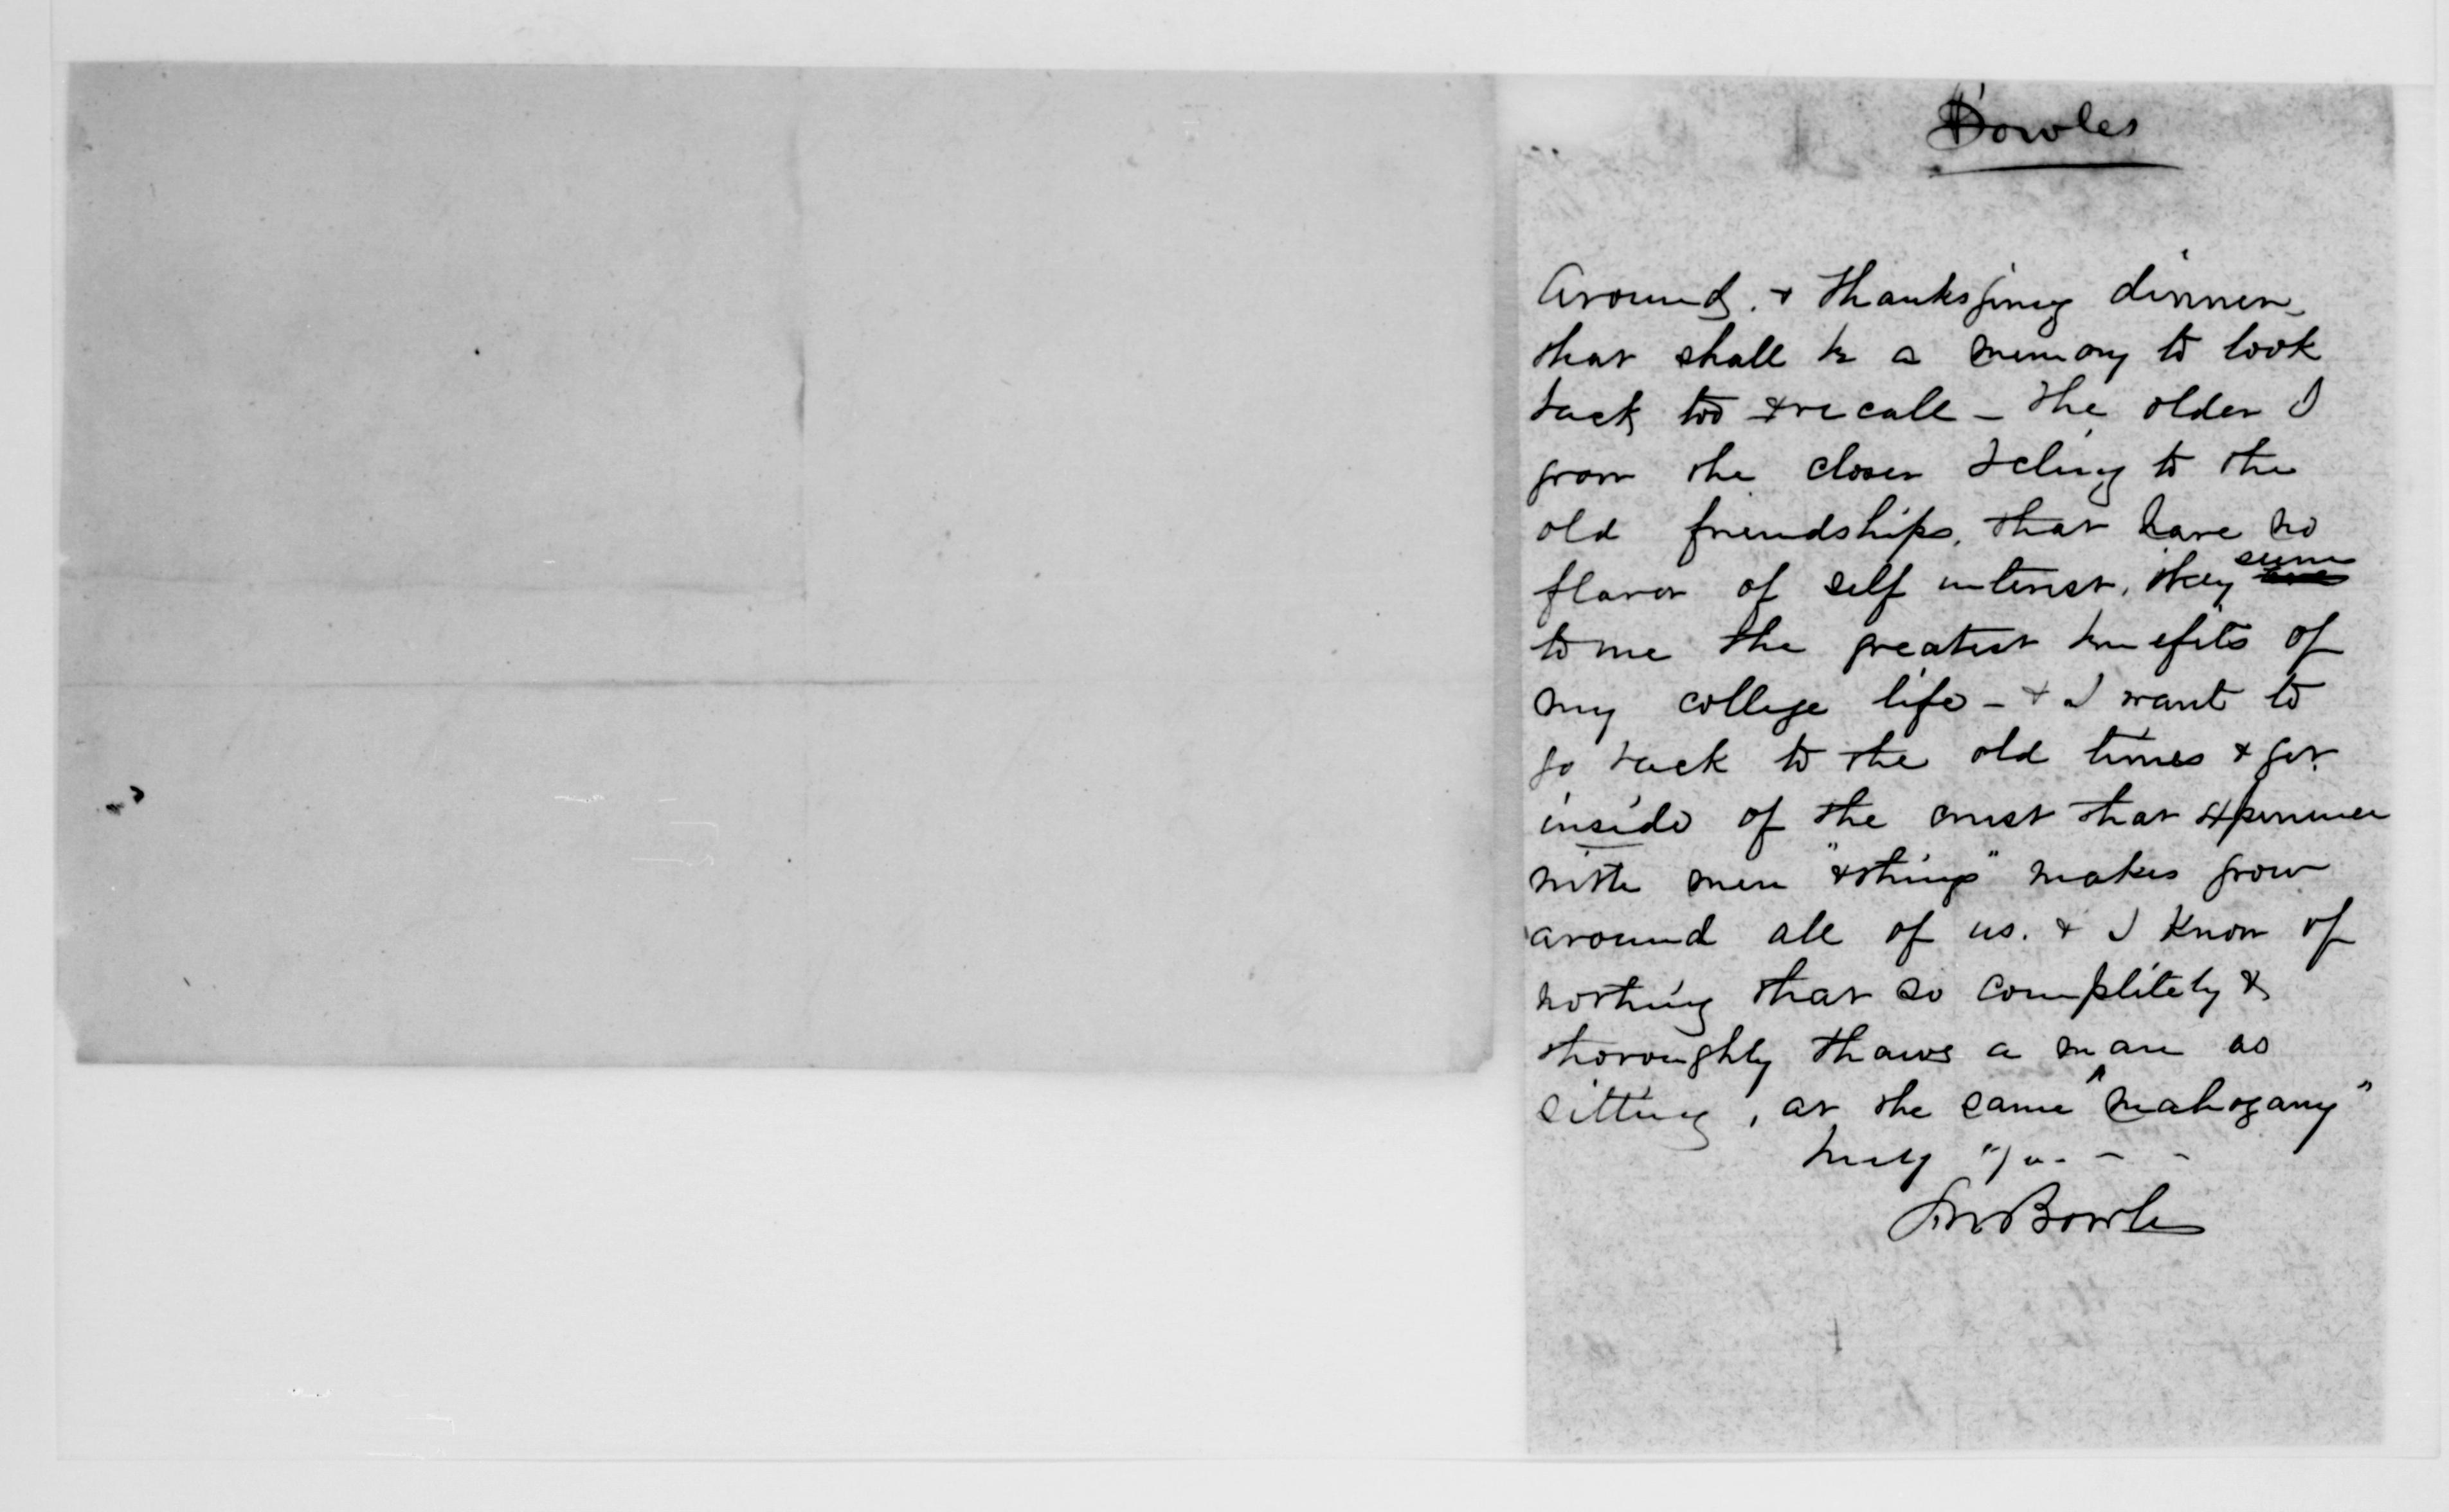 Bowles
Around. & Thanksgiving dinner
that shall be a memory to look
back too & recall - The older I
grow the closer I cling to the
old friendships, that have no
flavor of self interest, they seem
to me the greatest benefits of
my college life - & I want to
go back to the old times & get
inside of the crust that experience
with men "& things" makes grow
around all of us. & I know of
nothing that so completely &
thoroughly thaws a man as
sitting, at the same "mahogany"
truly yu- - -
Bowles